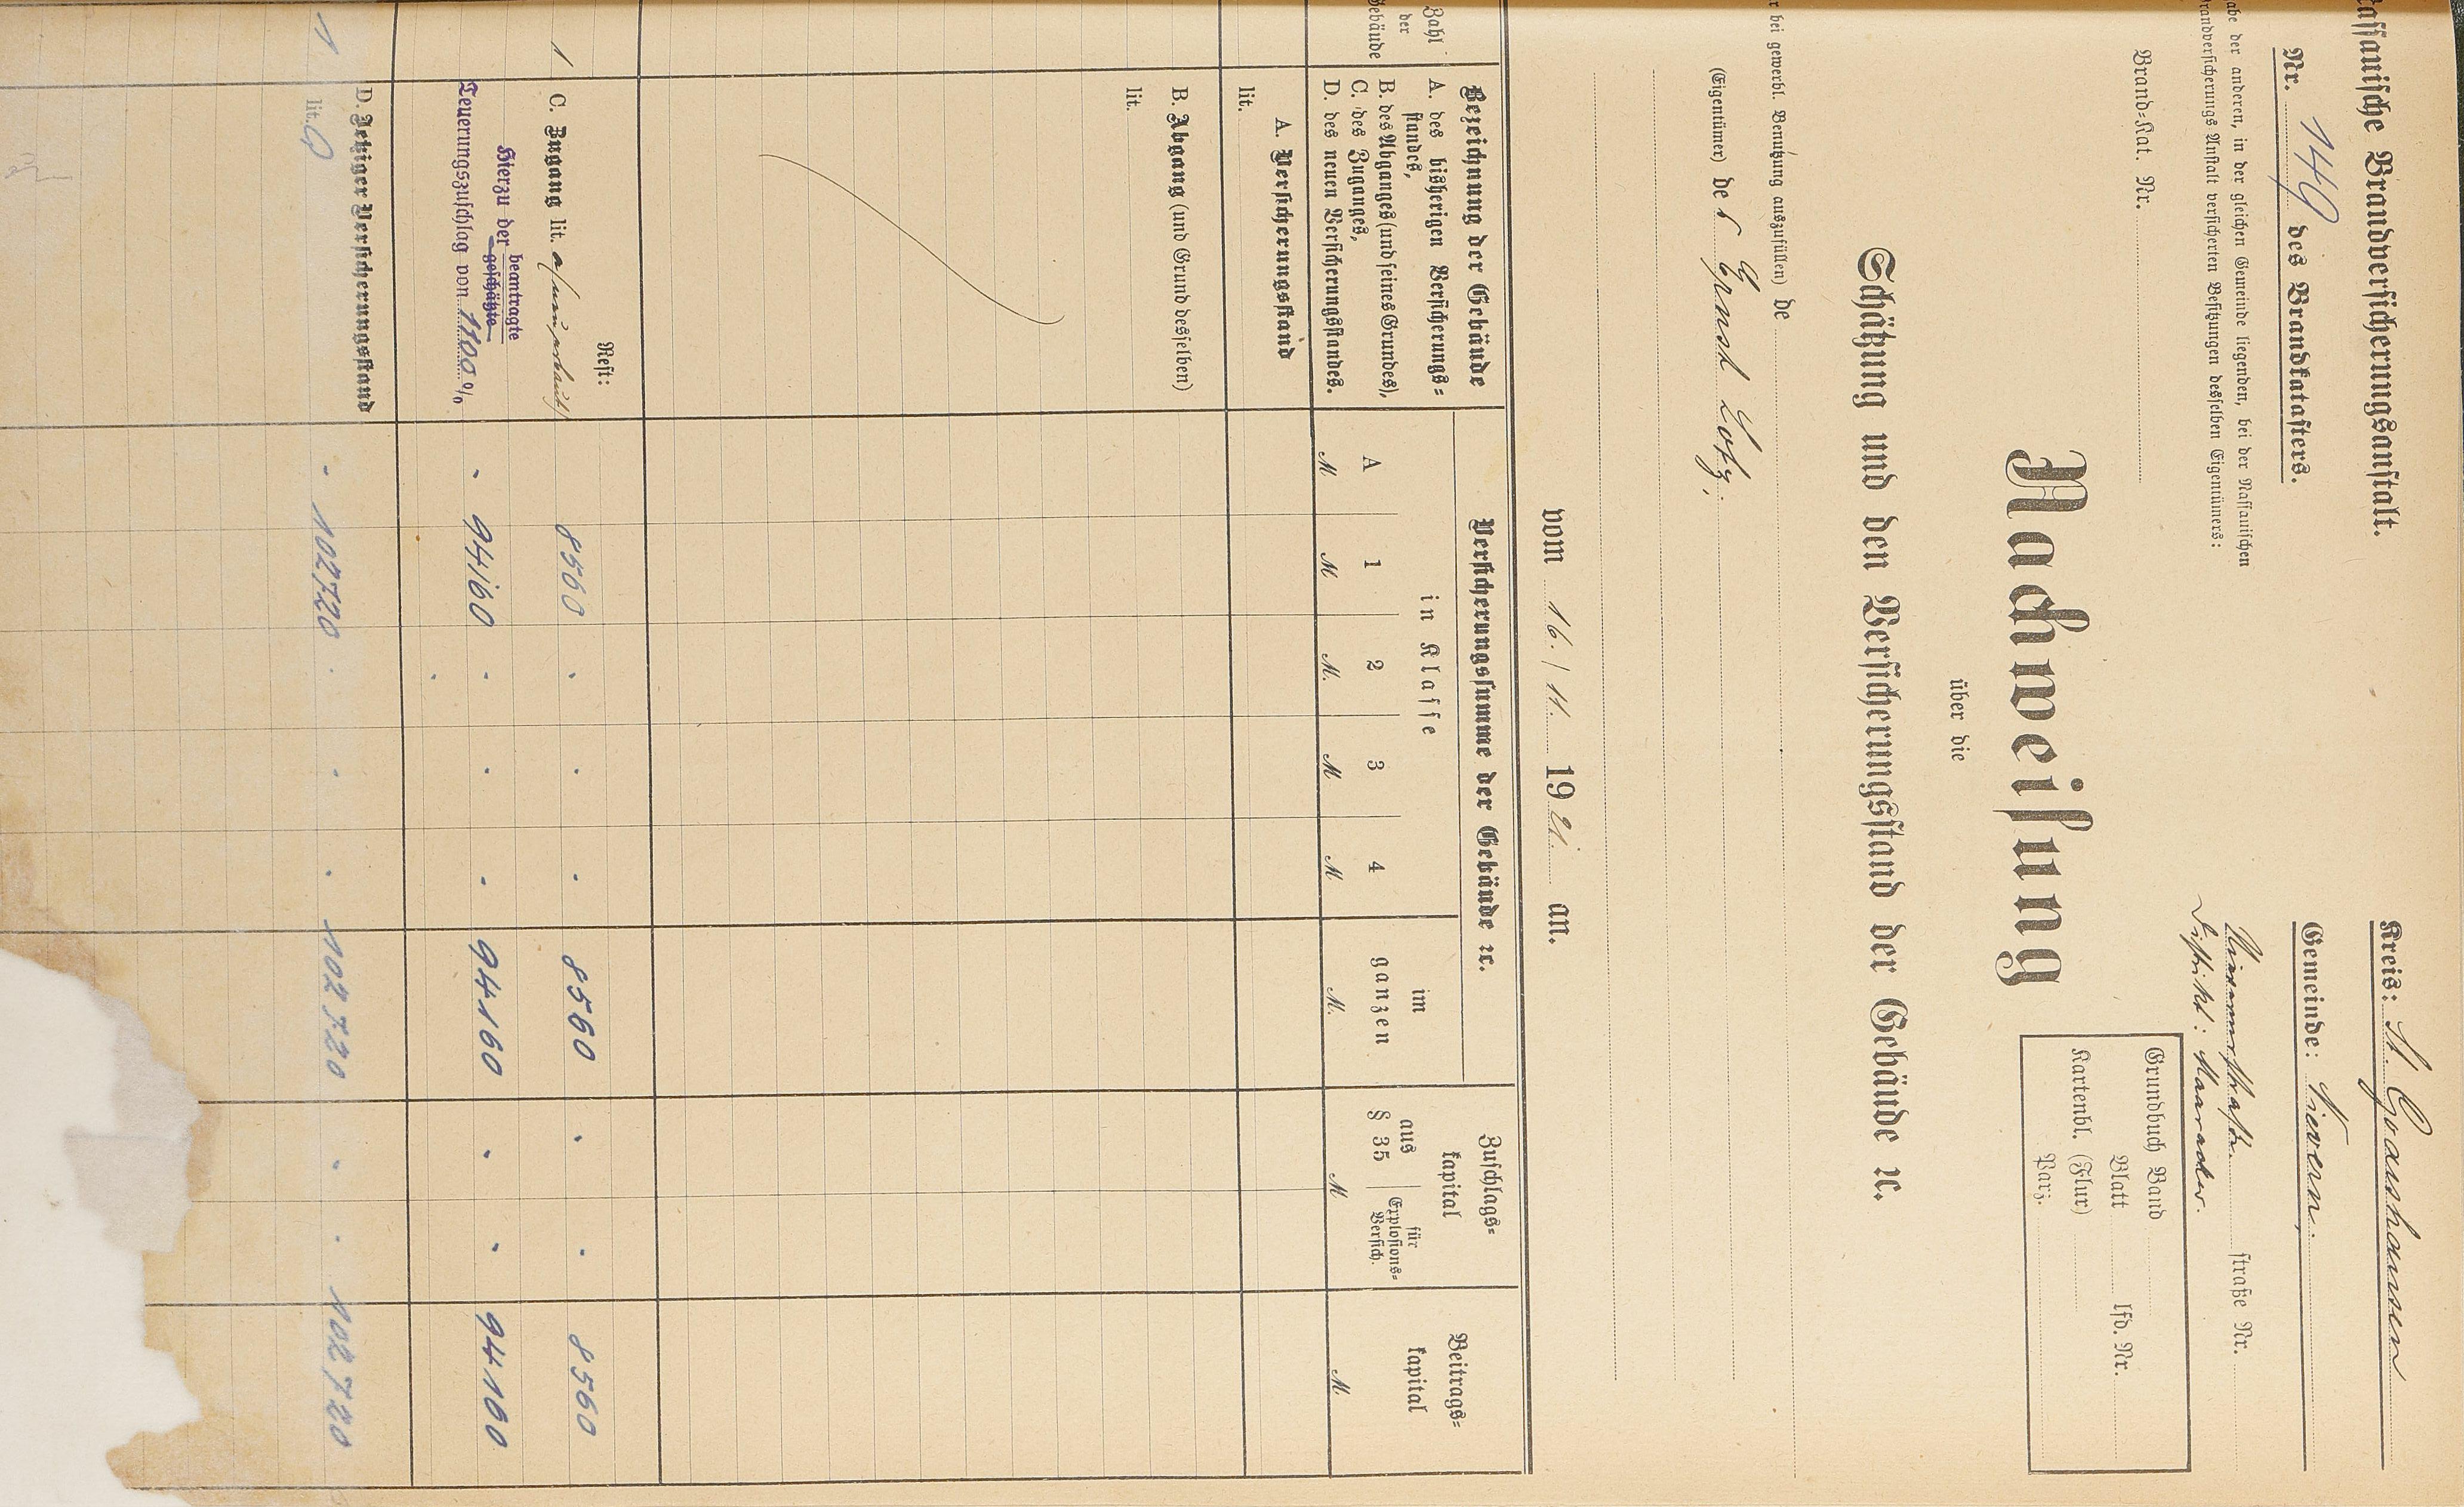 Nassauische Brandversicherungsanstalt.
Nr. 149 des Brandkatasters.
abe der anderen, in der gleichen Gemeinde liegenden, bei der Nassauischen
randversicherungs Anstalt versicherten Besitzungen desselben Eigentümers:
Brand=Kat. Nr.
Kreis: St. Goarshausen
Gemeinde: Nievern,
straße Nr.
Distrikt:
Grundbuch Band
Blatt lfd. Nr.
Kartenbl. (Flur)
Parz.
Nachweisung
über die
Schätzung und den Versicherungsstand der Gebäude ꝛc.
r bei gewerbl. Benutzung auszufüllen) de
(Eigentümer) des Ernst Lotz,
vom 16./11. 1921 an.
Zahl der Gebäude
Bezeichnung der Gebäude
A. des bisherigen Versicherungs=
standes,
B. des Abganges (und seines Grundes),
C. des Zuganges,
D. des neuen Versicherungsstandes.
Versicherungssumme der Gebäude ꝛc.
in Klasse
A 1 2 3 4
im ganzen
Zuschlags=
kapital
aus § 35
für Explosions=
Versich.
Beitrags=
kapital
M M M. M M M. M M
A. Versicherungsstand
lit.
B. Abgang (und Grund desselben)
lit.
Rest:
1 C. Zugang lit. a 8560 . . . 8560 . . 8560
Hierzu der beantragte
geschätzte
Teuerungszuschlag von 1100 % . 94160 . . . 94160 . . 94160
D. Jetziger Versicherungsstand
1 lit. a . 102720 . . . 102720 . . 102720